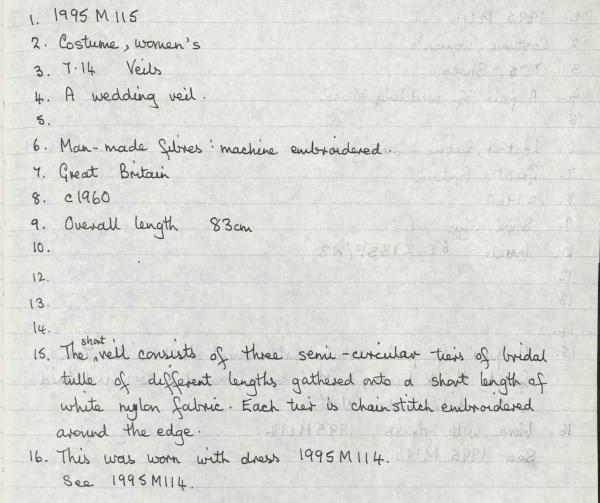 1. 1995 M 115
2. Costume, women's
3. 7.14 Veils
4. A wedding veil.
5.
6. Man-made fibres: machine embroidered.
7. Great Britain
8. c1960
9. Overall length 83cm
10.
12.
13.
14.
15. The short veil consists of three semi-circular tiers of bridal
tulle of different lengths gathered onto a short length of
white nylon fabric. Each tier is chainstitch embroidered
around the edge.
16. This was worn with dress 1995 M 114.
See 1995 M 114.